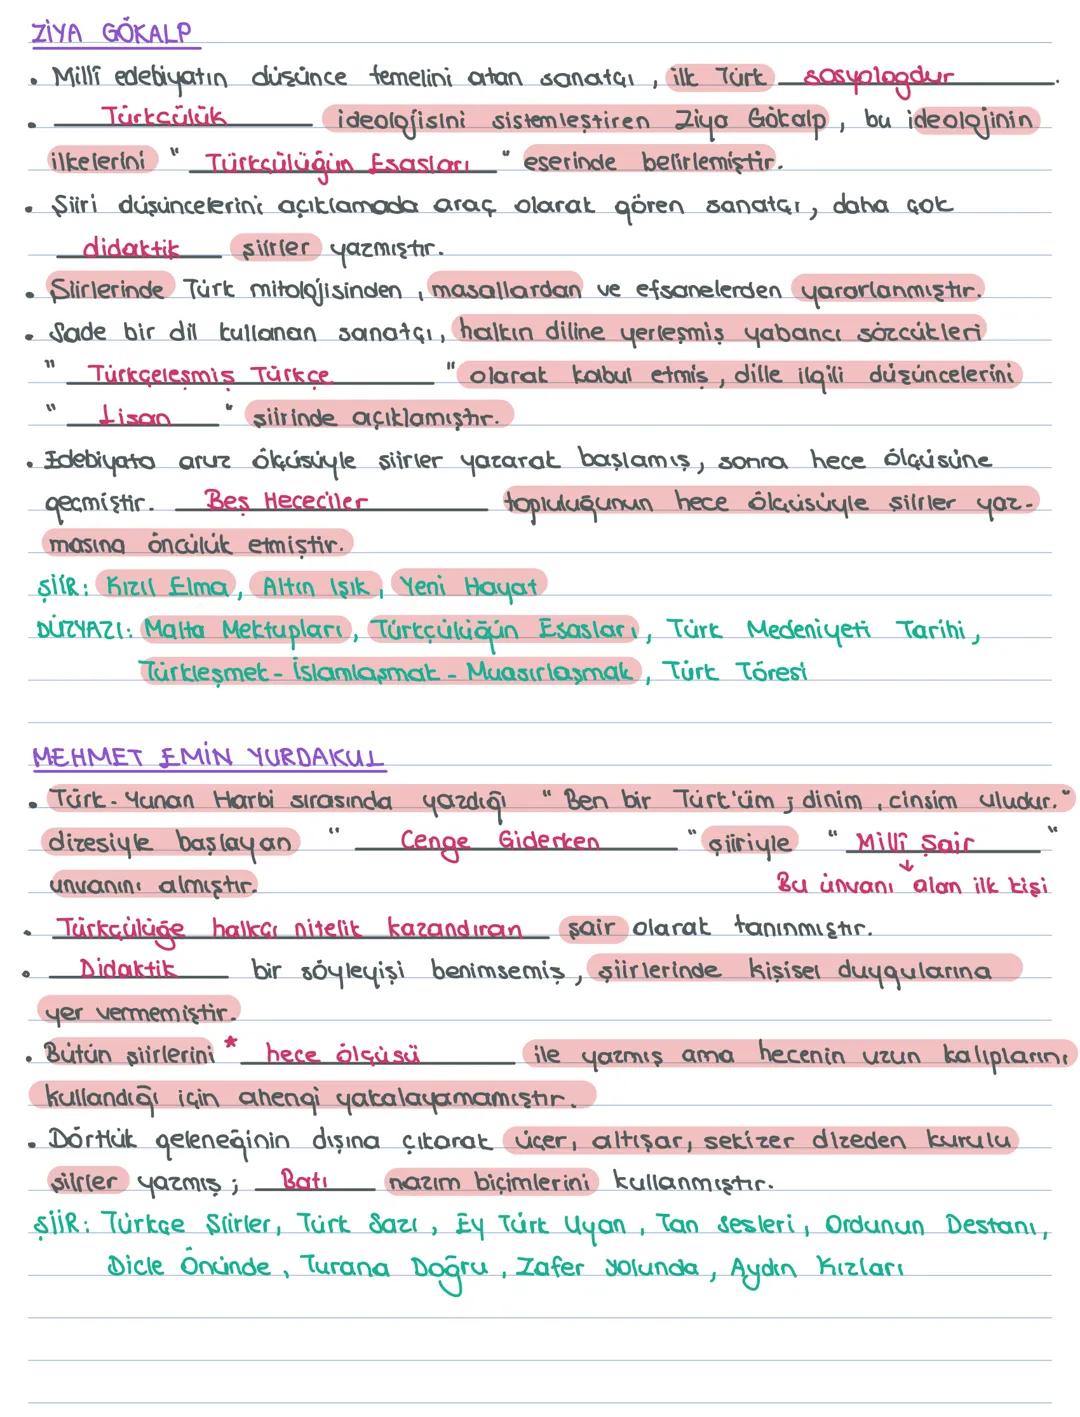 ZİYA GÖKALP
• Millî edebiyatın düşünce temelini atan sanatçı, ilk Türk sosyologdur.
• Türkçülük ideolojisini sistemleştiren Ziya Gökalp, bu ideolojinin
ilkelerini " Türkçülüğün Esasları " eserinde belirlemiştir.
• Şiiri düşüncelerini açıklamada araç olarak gören sanatçı, daha çok
didaktik şiirler yazmıştır.
• Şiirlerinde Türk mitolojisinden, masallardan ve efsanelerden yararlanmıştır.
• Sade bir dil kullanan sanatçı, halkın diline yerleşmiş yabancı sözcükleri
" Türkçeleşmiş Türkçe " olarak kabul etmiş, dille ilgili düşüncelerini
" Lisan " şiirinde açıklamıştır.
• Edebiyata aruz ölçüsüyle şiirler yazarak başlamış, sonra hece ölçüsüne
geçmiştir. Beş Hececiler topluluğunun hece ölçüsüyle şiirler yaz-
masına öncülük etmiştir.
ŞİİR: Kızıl Elma, Altın Işık, Yeni Hayat
DÜZYAZI: Malta Mektupları, Türkçülüğün Esasları, Türk Medeniyeti Tarihi,
Türkleşmek - İslamlaşmak - Muasırlaşmak, Türk Töresi
MEHMET EMİN YURDAKUL
• Türk - Yunan Harbi sırasında yazdığı " Ben bir Türk'üm; dinim, cinsim uludur."
dizesiyle başlayan " Cenge Giderken " şiiriyle " Millî Şair "
unvanını almıştır. Bu ünvanı alan ilk kişi
• Türkçülüğe halkçı nitelik kazandıran şair olarak tanınmıştır.
• Didaktik bir söyleyişi benimsemiş, şiirlerinde kişisel duygularına
yer vermemiştir.
• Bütün şiirlerini * hece ölçüsü ile yazmış ama hecenin uzun kalıplarını
kullandığı için ahengi yakalayamamıştır.
• Dörtlük geleneğinin dışına çıkarak üçer, altışar, sekizer dizeden kurulu
şiirler yazmış; Batı nazım biçimlerini kullanmıştır.
ŞİİR: Türkçe Şiirler, Türk Sazı, Ey Türk Uyan, Tan Sesleri, Ordunun Destanı,
Dicle Önünde, Turana Doğru, Zafer Yolunda, Aydın Kızları